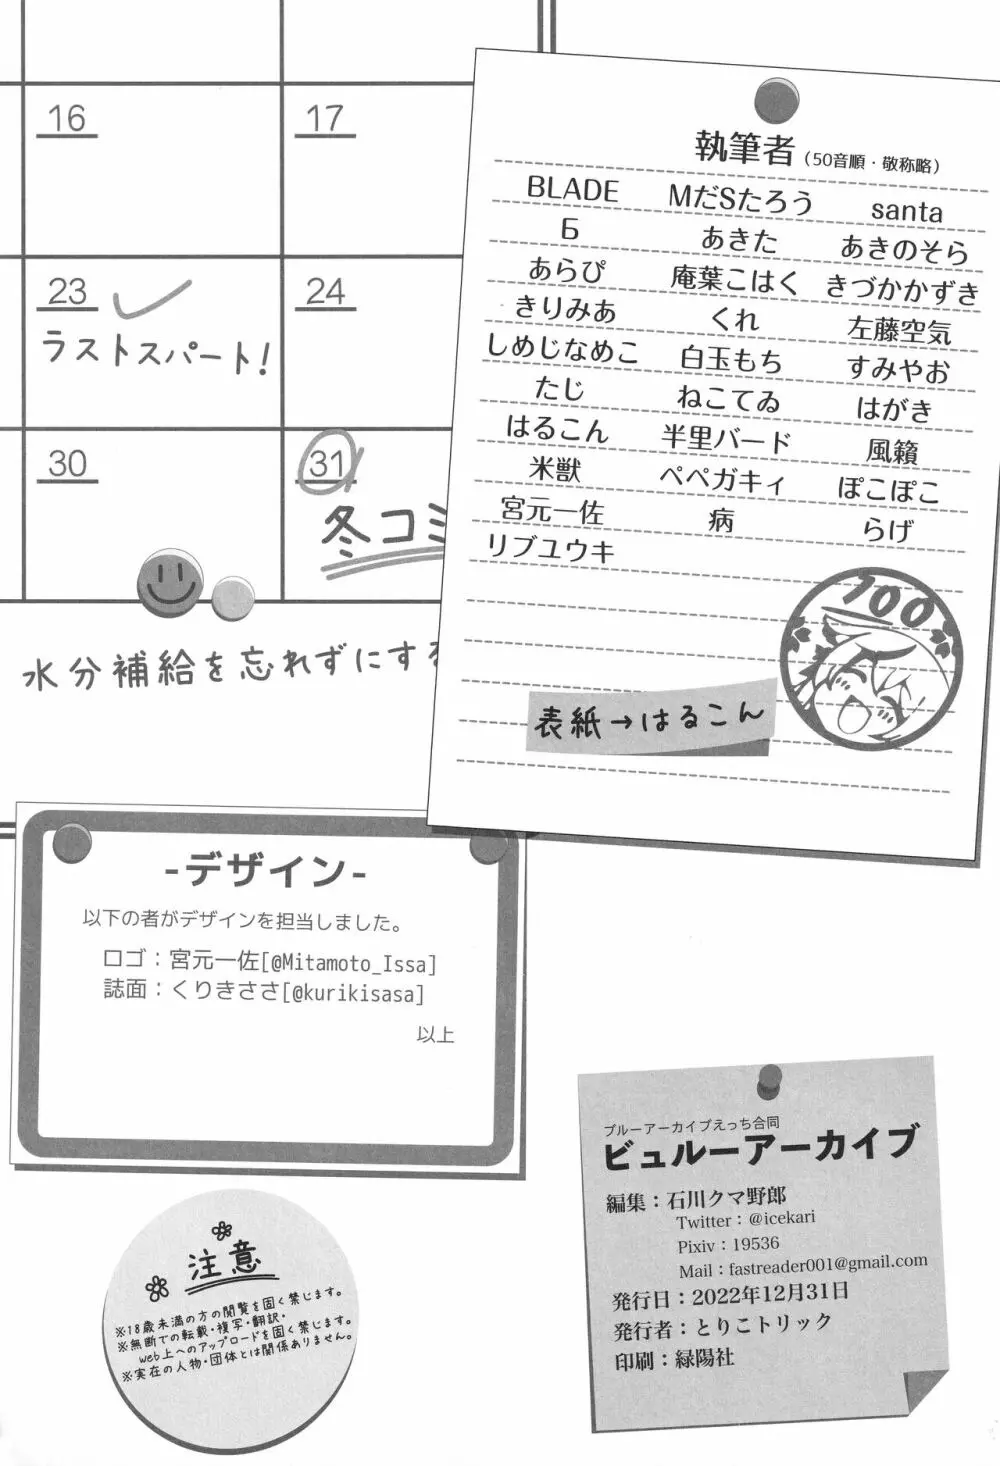 16
17
23
24
ラストスパート!
30
31
冬コミ
水分補給を忘れずにする
執筆者(50音順・敬称略)
BLADE MだSたろう santa
Б あきた あきのそら
あらぴ 庵葉こはく きづかかずき
きりみあ くれ 左藤空気
しめじなめこ 白玉もち すみやお
たじ ねこてゐ はがき
はるこん 半里バード 風籟
米獣 ペペガキィ ぽこぽこ
宮元一佐 病 らげ
リブユウキ
100
表紙→はるこん
-デザイン-
以下の者がデザインを担当しました。
ロゴ:宮元一佐[@Mitamoto_Issa]
誌面:くりきささ[@kurikisasa]
以上
注意
※18歳未満の方の閲覧を固く禁じます。
※無断での転載・複写・翻訳・
web上へのアップロードを固く禁じます。
※実在の人物・団体とは関係ありません。
ブルーアーカイブえっち合同
ビュルーアーカイブ
編集:石川クマ野郎
Twitter:@icekari
Pixiv:19536
Mail:fastreader001@gmail.com
発行日:2022年12月31日
発行者:とりこトリック
印刷:緑陽社